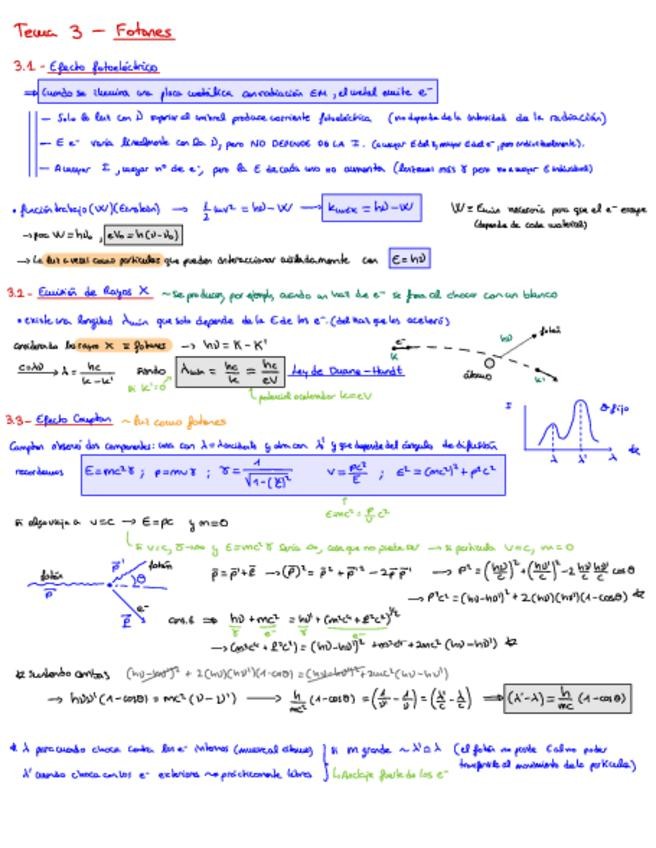 Tema 3 - Fotones
3.1 - Efecto fotoeléctrico
⇒ Cuando se ilumina una placa metálica con radiación EM, el metal emite e⁻
- Solo la luz con ν superior al umbral produce corriente fotoeléctrica (no depende de la intensidad de la radiación)
- E e⁻ varía linealmente con la ν, pero NO DEPENDE DE LA I.
- Aumentar I, mayor nº de e⁻, pero la E de cada uno no aumenta
• función trabajo (W) (Einstein) → 1/2 mv² = hν - W → Kmáx = hν - W
W = Emin necesaria para que el e⁻ escape
(depende de cada material)
→ W = hν₀, eV₀ = h(ν-ν₀)
→ La luz a veces como partículas que pueden interaccionar aisladamente con E = hν
3.2 - Emisión de Rayos X ~ se producen, por ejemplo, cuando un haz de e⁻ se frena al chocar con un blanco
• existe una longitud λmin que solo depende de la E de los e⁻. (del haz que los aceleró)
considerando los rayos X ≡ fotones → hν = K - K'
c=λν → λ = hc/(K-K') siendo λmin = hc/K = hc/eV Ley de Duane-Hundt
si K'=0
potencial acelerador K=eV
e⁻
K
hν
fotón
átomo
K'
3.3 - Efecto Compton ~ luz como fotones
Compton observó dos componentes: una con λ=λincidente y otra con λ' y que depende del ángulo de difusión
I
θ fijo
λ λ' λ
recordemos E = mc²γ ; p = mvγ ; γ = 1/√(1-(v/c)²) v = pc²/E ; E² = (mc²)² + p²c²
E=mc² = p/v c²
si algo viaja a v=c → E=pc y m=0
si v=c, γ→∞ y E=mc²γ sería ∞, cosa que no puede ser → si partícula v=c, m=0
fotón
p
p'
fotón
θ
e⁻
P
→ P² = (hν/c)² + (hν'/c)² - 2 hν/c hν'/c cosθ
→ P²c² = (hν-hν')² + 2(hν)(hν')(1-cosθ)
cons. E ⇒ hν + mc² = hν' + (m²c⁴ + P²c²)^1/2
γ e⁻ γ e⁻
(hν-hν')² + 2(hν)(hν')(1-cosθ) = (hν-hν')² + 2mc²(hν-hν')
→ hνν'(1-cosθ) = mc²(ν-ν') → h/mc² (1-cosθ) = (1/ν' - 1/ν) = (λ'/c - λ/c) ⇒ (λ'-λ) = h/mc (1-cosθ)
λ para cuando choca contra los e⁻ internos
λ' cuando choca con los e⁻ exteriores ~ prácticamente libres
si m grande ~ λ' ≃ λ
Anclaje fuerte de los e⁻